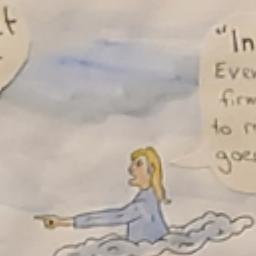 t
"In
Ever
firm
to r
goes